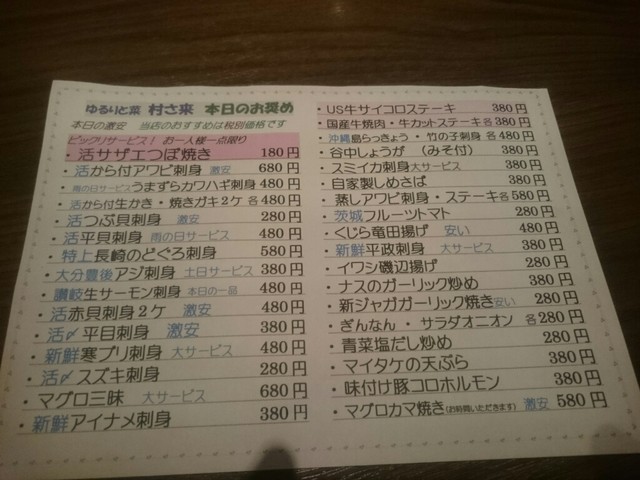 ゆるりと菜 村さ来 本日のお奨め
本日の激安 当店のおすすめは税別価格です
ビックリサービス! お一人様一点限り
・活サザエつぼ焼き 180円
・活から付アワビ刺身 激安 680円
・雨の日サービスうまずらカワハギ刺身 480円
・活から付生かき・焼きガキ2ケ 各480円
・活つぶ貝刺身 激安 280円
・活平貝刺身 雨の日サービス 480円
・特上長崎のどぐろ刺身 580円
・大分豊後アジ刺身 土日サービス 380円
・讃岐生サーモン刺身 本日の一品 480円
・活赤貝刺身2ケ 激安 480円
・活〆平目刺身 激安 380円
・新鮮寒ブリ刺身 大サービス 480円
・活〆スズキ刺身 280円
・マグロ三昧 大サービス 680円
・新鮮アイナメ刺身 380円
・US牛サイコロステーキ 380円
・国産牛焼肉・牛カットステーキ各 380円
・沖縄島らっきょう・竹の子刺身 各480円
・谷中しょうが (みそ付) 380円
・スミイカ刺身大サービス 380円
・自家製しめさば 380円
・蒸しアワビ刺身・ステーキ各580円
・茨城フルーツトマト 280円
・くじら竜田揚げ 安い 480円
・新鮮平政刺身 大サービス 380円
・イワシ磯辺揚げ 280円
・ナスのガーリック炒め 380円
・新ジャガガーリック焼き安い 280円
・ぎんなん・サラダオニオン 各280円
・青菜塩だし炒め 280円
・マイタケの天ぷら 380円
・味付け豚コロホルモン 380円
・マグロカマ焼き(お時間いただきます) 激安 580円